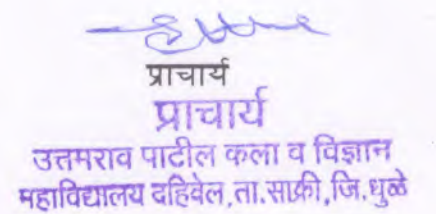 प्राचार्य
प्राचार्य
उत्तमराव पाटील कला व विज्ञान
महाविद्यालय दहिवेल,ता.साक्री,जि.धुळे